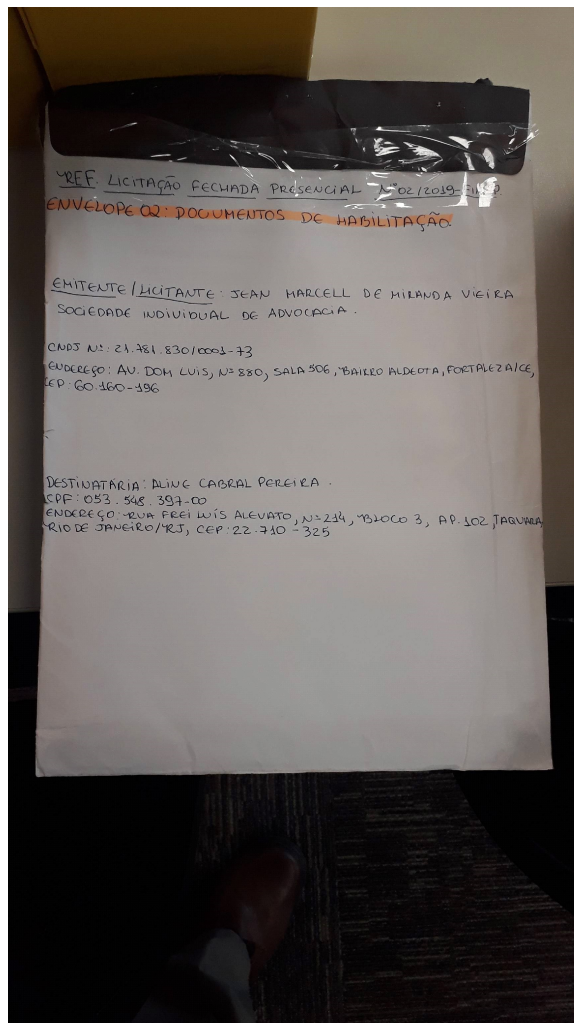 REF. LICITAÇÃO FECHADA PRESENCIAL Nº 02/2019-
ENVELOPE 02: DOCUMENTOS DE HABILITAÇÃO
EMITENTE/LICITANTE: JEAN MARCELL DE MIRANDA VIEIRA
SOCIEDADE INDIVIDUAL DE ADVOCACIA.
CNPJ Nº: 21.781.830/0001-73
ENDEREÇO: AV. DOM LUIS, Nº 880, SALA 506, BAIRRO ALDEOTA, FORTALEZA/CE,
CEP: 60.160-196
DESTINATÁRIA: ALINE CABRAL PEREIRA.
CPF: 053.548.397-00
ENDEREÇO: RUA FREI LUÍS ALEVATO, Nº 214, BLOCO 3, AP. 102, TAQUARA,
RIO DE JANEIRO/RJ, CEP: 22.710-325